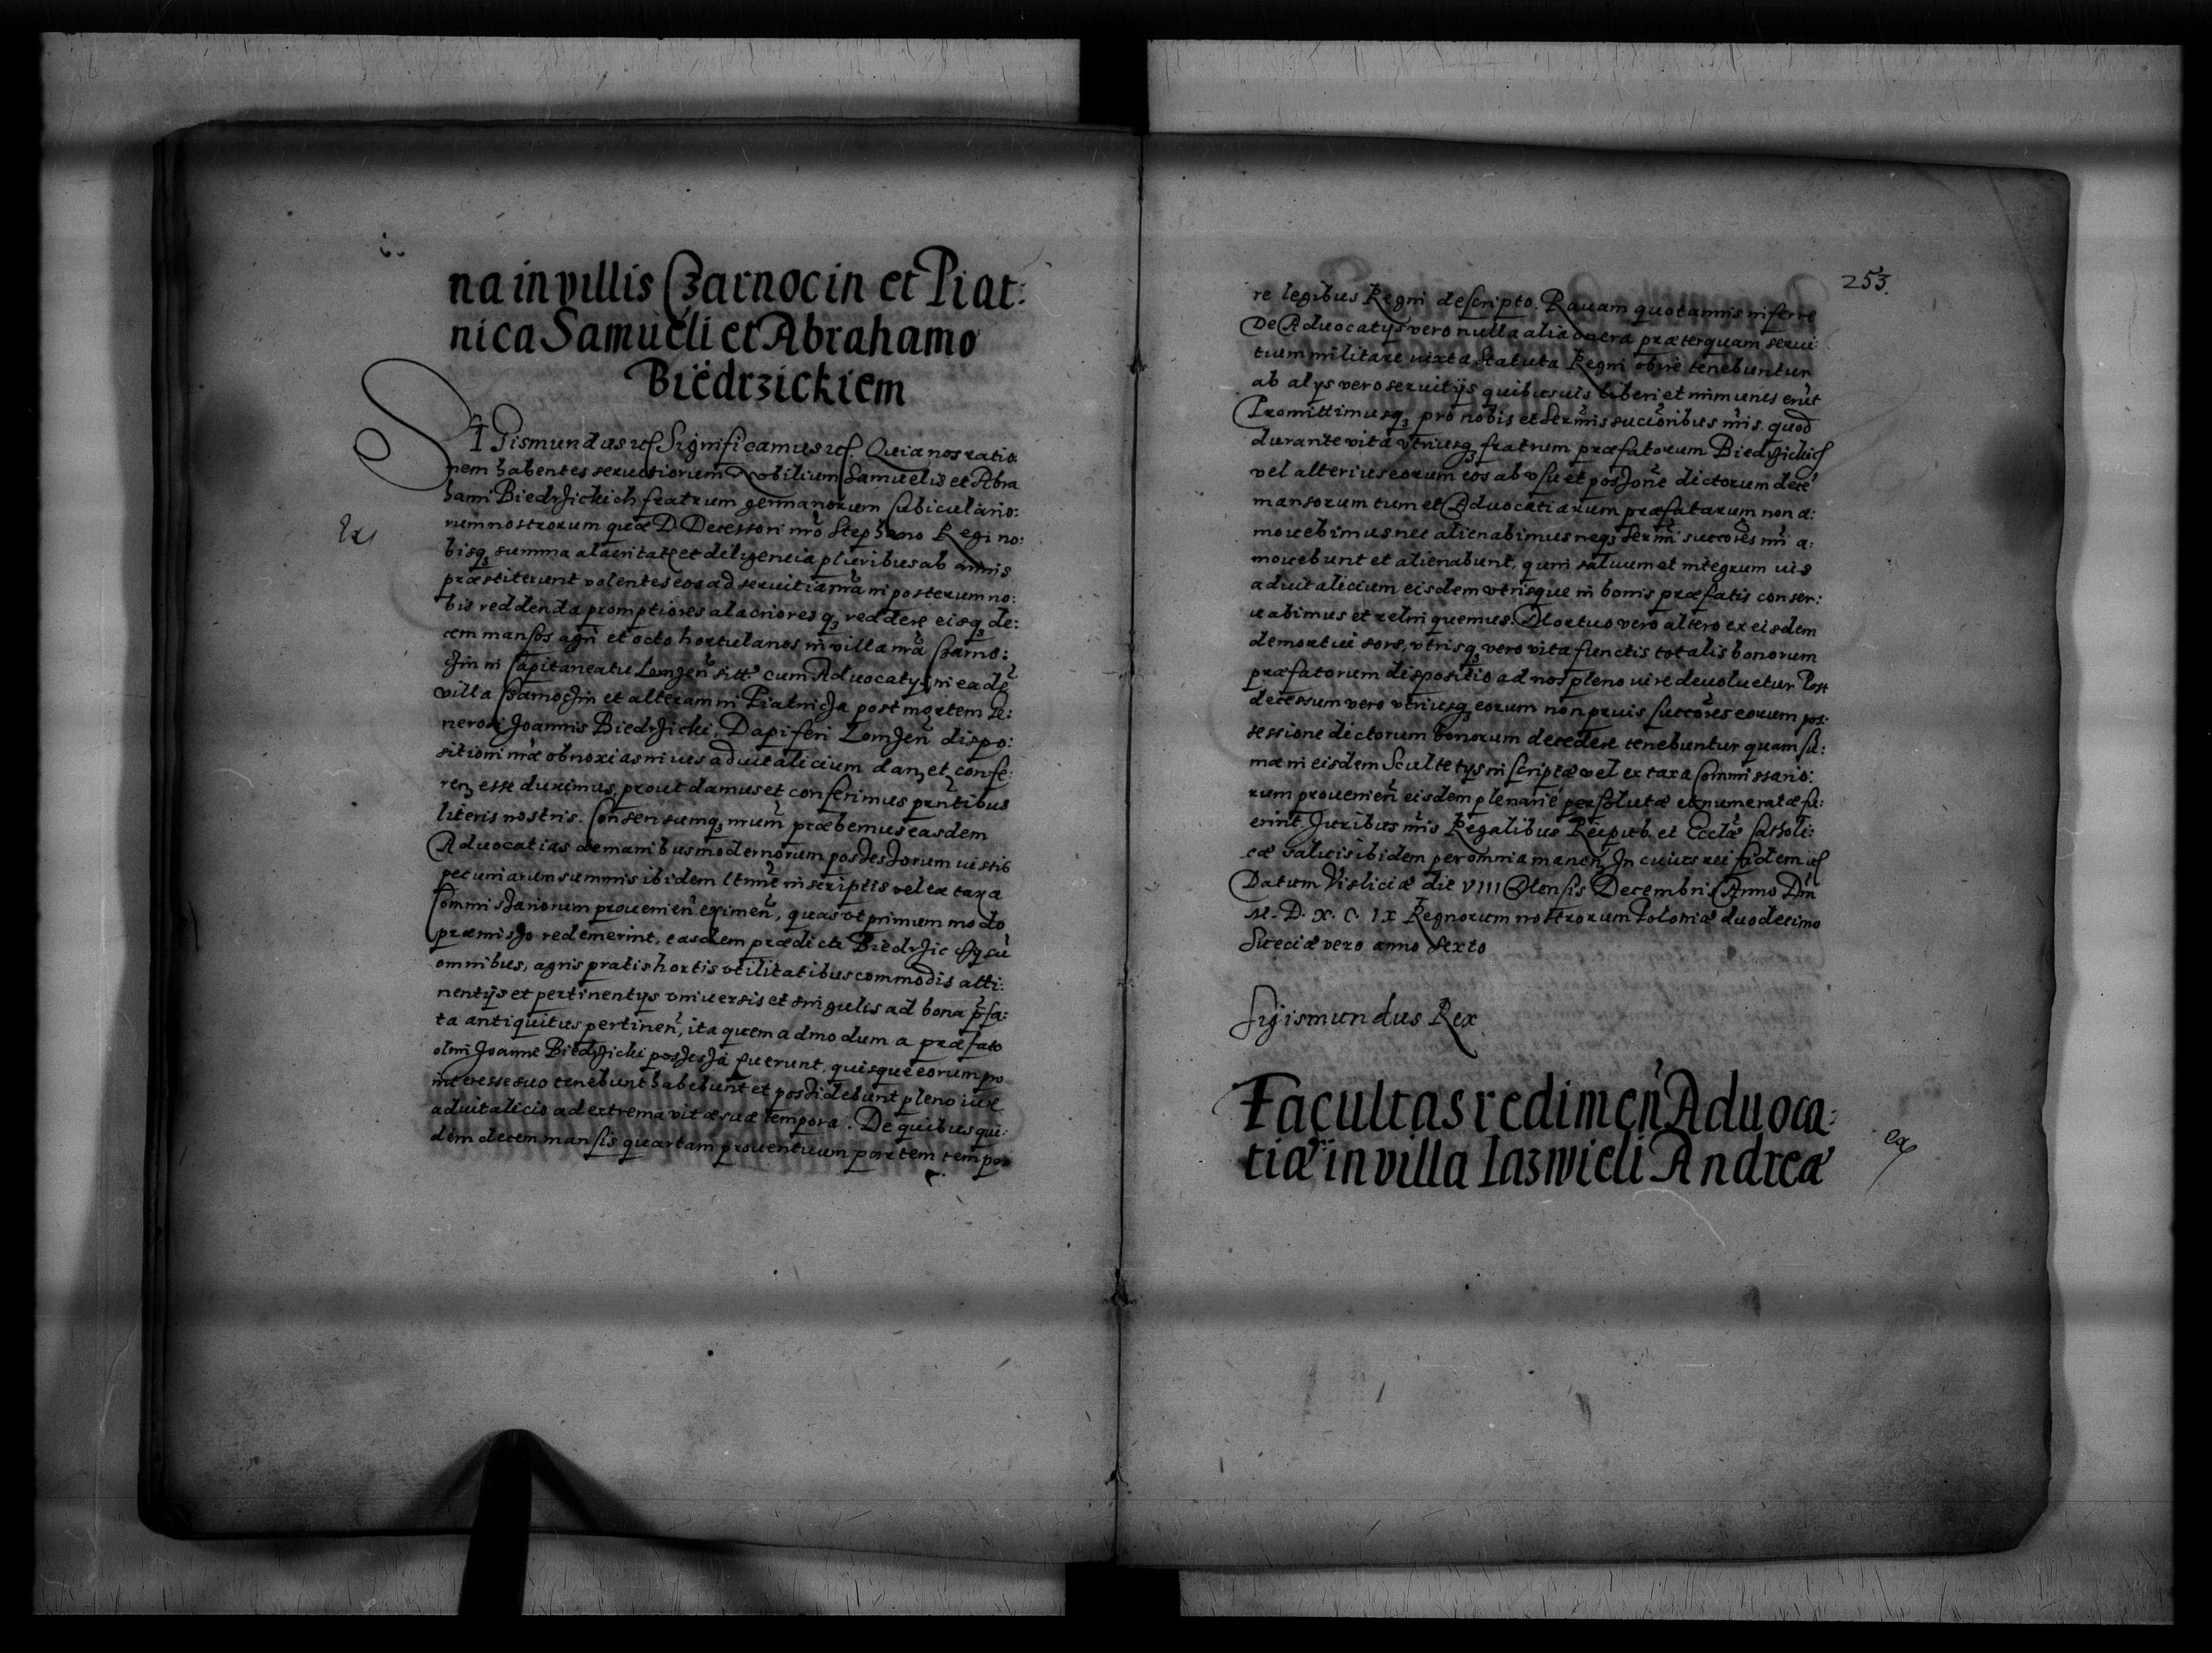 na in villis Czarnocin et Piat:
nica Samueli et Abrahamo
Biedrzickiem
SIGismundus etc Significamus etc Quia nos ratio
nem habentes seruitiorum Nobilium Samuelis et Abra
hami Biedrzickich fratrum germanorum Cubiculario:
rum nostrorum quæ D. Decessori nrõ Stephano Regi no:
bisq3 summa alacritate et diligencia pluribus ab annis
præstiterunt volentes eos ad seruitia nrã in posterum no:
bis reddenda promptiores alacrioresq3 reddere eisq3 de:
cem mansos agri et octo hortulanos in villa nrã Czarno:
czin in Capitaneatu Lomzeñ sitt. cum Aduocatijs in eadẽ
villa Czarnoczin et alteram in Piatnicza post mortem Ge:
nerosi Joannis Biedrzicki, Dapiferi Lomzeñ dispo:
sitioni nræ obnoxias in ius aduitalicium dan3 et confe:
ren3 esse duximus, prout damus et conferimus pntibus
literis nostris. Consensumq3 nrum præbemus easdem
Aduocatias de manibus modernorum possessorum iustis
pecuniarum summis ibidem ltime inscriptis vel ex taxa
Commissariorum prouenieñ eximeñ, quas vt primum modo
præmisso redemerint, easdem prædicti Biedrziccy cũ
omnibus, agris pratis hortis vtilitatibus commodis atti:
nentijs et pertinentijs vniuersis et singulis ad bona p̃fa:
ta antiquitus pertineñ, ita quemadmodum a præfato
olim Joanne Biedrzicki possessa fuerunt, quisque eorum pro
interesse suo tenebunt habebunt et possidebunt pleno iure
aduitalicio ad extrema vitæ suæ tempora. De quibus qui:
dem decem mansis quartam prouentuum partem tempo
Ex
253.
re legibus Regni descripto. Rauam quotannis inferre
De Aduocatijs vero nulla alia onera præterquam serui:
tium militare iuxta Statuta Regni obire tenebuntur
ab alijs vero seruitijs quibusuis liberi et immunes erũt
Promittimusq3 pro nobis et Sermis succoribus nris. quod
durante vita vtriusq3 fratrum præfatorum Biedrzickich
vel alterius eorum eos ab vsu et possione dictorum decẽ
mansorum tum et Aduocatiarum præfatarum non a:
mouebimus nec alienabimus neq3 Sermi succores nri a:
mouebunt et alienabunt, quin saluum et integrum ius
aduitalicium eisdem vtrisque in bonis præfatis conser:
uabimus et relinquemus. Mortuo vero altero ex eisdem
demortui sors, vtrisq3 vero vita functis totalis bonorum
præfatorum dispositio ad nos pleno iure deuoluetur Post
decessum vero vtriusq3 eorum non prius succores eorum pos:
sessione dictorum bonorum decedere tenebuntur quam su:
mæ in eisdem Scultetijs inscriptæ vel ex taxa Commissario:
rum prouenieñ eisdem plenarie persolutæ et numeratæ fu:
erint. Juribus nris Regalibus Reipub. et Ecclæ Catholi:
cæ saluis ibidem per omnia maneñ. In cuius rei fidem etc
Datum Visliciæ die VIII Mensis Decembris Anno Dni
M. D. X. C. IX Regnorum nostrorum Poloniæ duodecimo
Sueciæ vero anno sexto
Sigismundus Rex
Facultas redimeñ Aduoca:
tiæ in villa Iazwieli Andreæ
ex